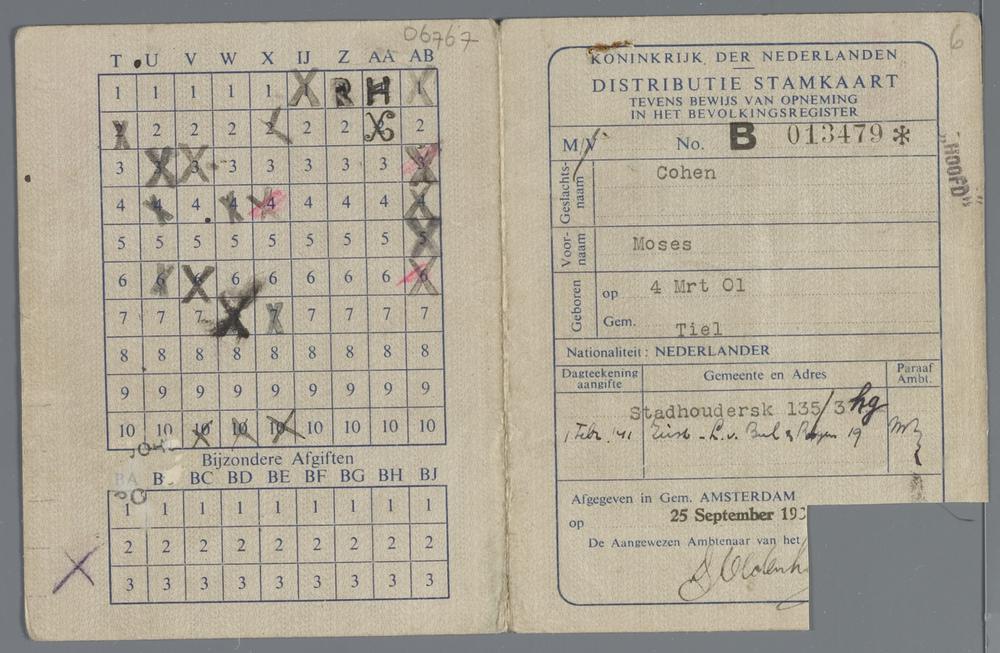 06767
T U V W X IJ Z AA AB
1 1 1 1 1 1 R H 1
2 2 2 2 2 2 2 2
3 3 3 3 3 3 3 3
4 4 4 4 4 4 4 4 4
5 5 5 5 5 5 5 5 5
6 6 6 6 6 6 6 6
7 7 7 7 7 7 7 7
8 8 8 8 8 8 8 8 8
9 9 9 9 9 9 9 9 9
10 10 10 10 10 10 10 10 10
Bijzondere Afgiften
BA B BC BD BE BF BG BH BJ
1 1 1 1 1 1 1 1 1
2 2 2 2 2 2 2 2 2
3 3 3 3 3 3 3 3 3
6
KONINKRIJK DER NEDERLANDEN
DISTRIBUTIE STAMKAART
TEVENS BEWIJS VAN OPNEMING
IN HET BEVOLKINGSREGISTER
M/V No. B 013479 *
„HOOFD”
Geslachts-
naam
Cohen
Voor-
naam
Moses
Geboren
op 4 Mrt 01
Gem. Tiel
Nationaliteit: NEDERLANDER
Dagteekening
aangifte
Gemeente en Adres
Paraaf
Ambt.
Stadhoudersk 135/3 hg
1 Febr. '41 19
Afgegeven in Gem. AMSTERDAM
op 25 September 193
De Aangewezen Ambtenaar van het